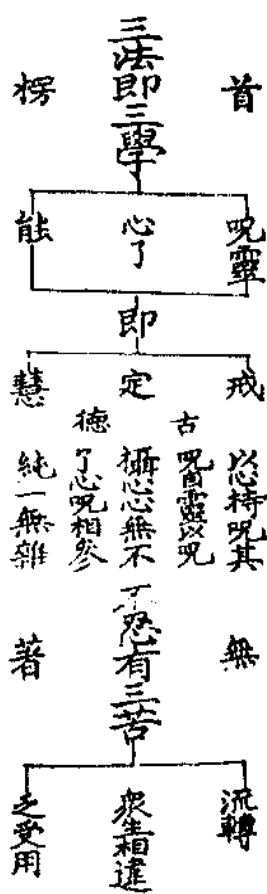 首楞
三法即三學
呪靈
心了
能
即
戒
定
慧
古德
以心持呪其
呪自靈以呪
攝心心無不
了心呪相參
純一無雜
無著
不忍有三苦
流轉
眾生相違
乏受用